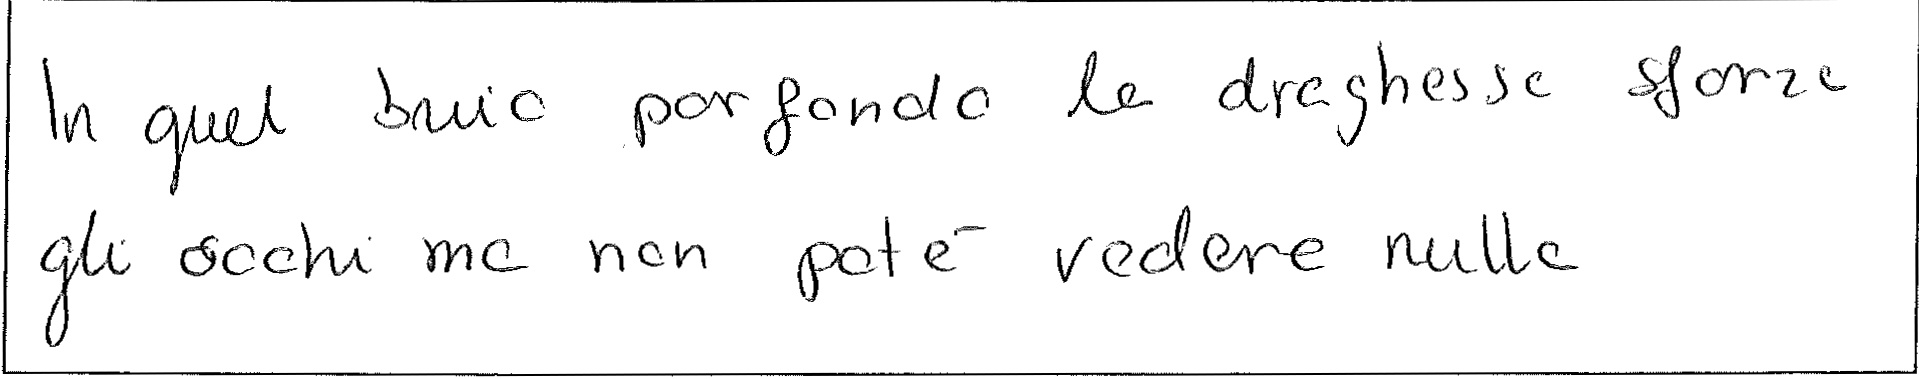 In quel buio porfondo la draghessa sforza
gli occhi ma non poté vedere nulla